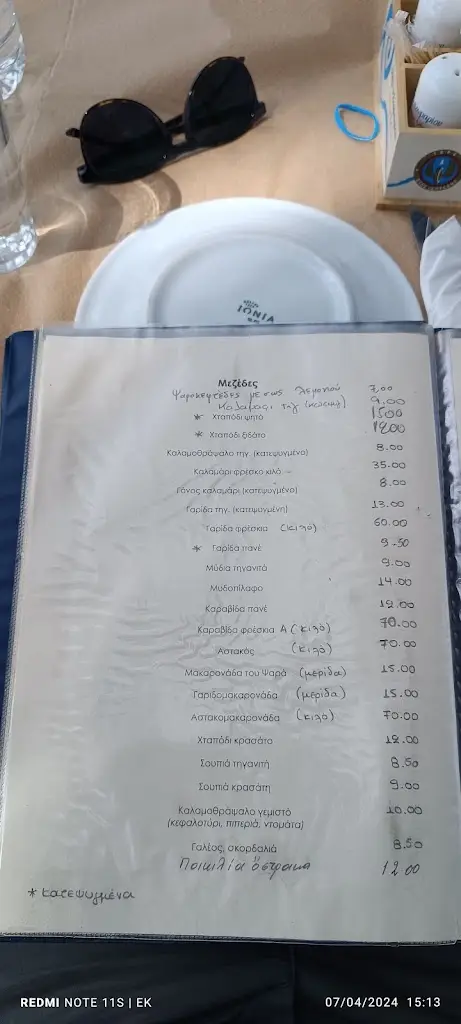 IONIA
Μεζέδες
Ψαροκεφτέδες με σως λεμονιού 7,00
Καλαμαρ. τηγ (κατεψ) 9.00
* Χταπόδι ψητό 15.00
* Χταπόδι ξιδάτο 12.00
Καλαμοθράψαλο τηγ. (κατεψυγμένο) 8.00
Καλαμάρι φρέσκο κιλό 35.00
Γόνος καλαμάρι (κατεψυγμένο) 8.00
Γαρίδα τηγ. (κατεψυγμένη) 13.00
Γαρίδα φρέσκια (κιλό) 60.00
* Γαρίδα πανέ 9.50
Μύδια τηγανιτά 9.00
Μυδοπίλαφο 14.00
Καραβίδα πανέ 12.00
Καραβίδα φρέσκια Α (κιλό) 70.00
Αστακός (κιλό) 70.00
Μακαρονάδα του Ψαρά (μερίδα) 15.00
Γαριδομακαρονάδα (μερίδα) 15.00
Αστακομακαρονάδα (κιλό) 70.00
Χταπόδι κρασάτο 12.00
Σουπιά τηγανιτή 8.50
Σουπιά κρασάτη 9.00
Καλαμοθράψαλο γεμιστό 10.00
(κεφαλοτύρι, πιπεριά, ντομάτα)
Γαλέος, σκορδαλιά 8.50
Ποικιλία όστρακα 12.00
* κατεψυγμένα
REDMI NOTE 11S | EK 07/04/2024 15:13